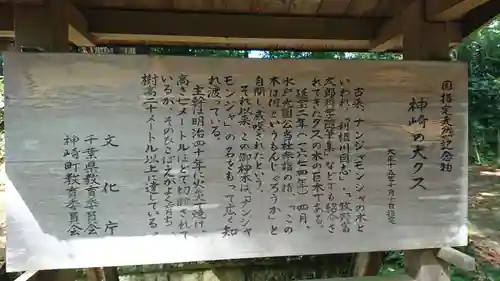 国指定天然記念物
神崎の大クス
大正十五年十月二十日指定
古来、ナンジャモンジャの木と
いわれ、「利根川図志」、牧野富
太郎科学写真集などでも紹介さ
れてきたクスの木の巨木である。
延宝二年(一六七四年)四月、
水戸光圀公当社参詣の折、「この
木は何というもんじゃろうか」と
自問し、感嘆されたという。
それ以来、この御神木は、「ナンジャ
モンジャ」の名をもって広く知
れ渡っている。
主幹は明治四十年に火災で焼け、
高さ七メートルほどで切断されて
いるが、そのひこばえがよく育ち、
樹高二十メートル以上に達している。
文化庁
千葉県教育委員会
神崎町教育委員会